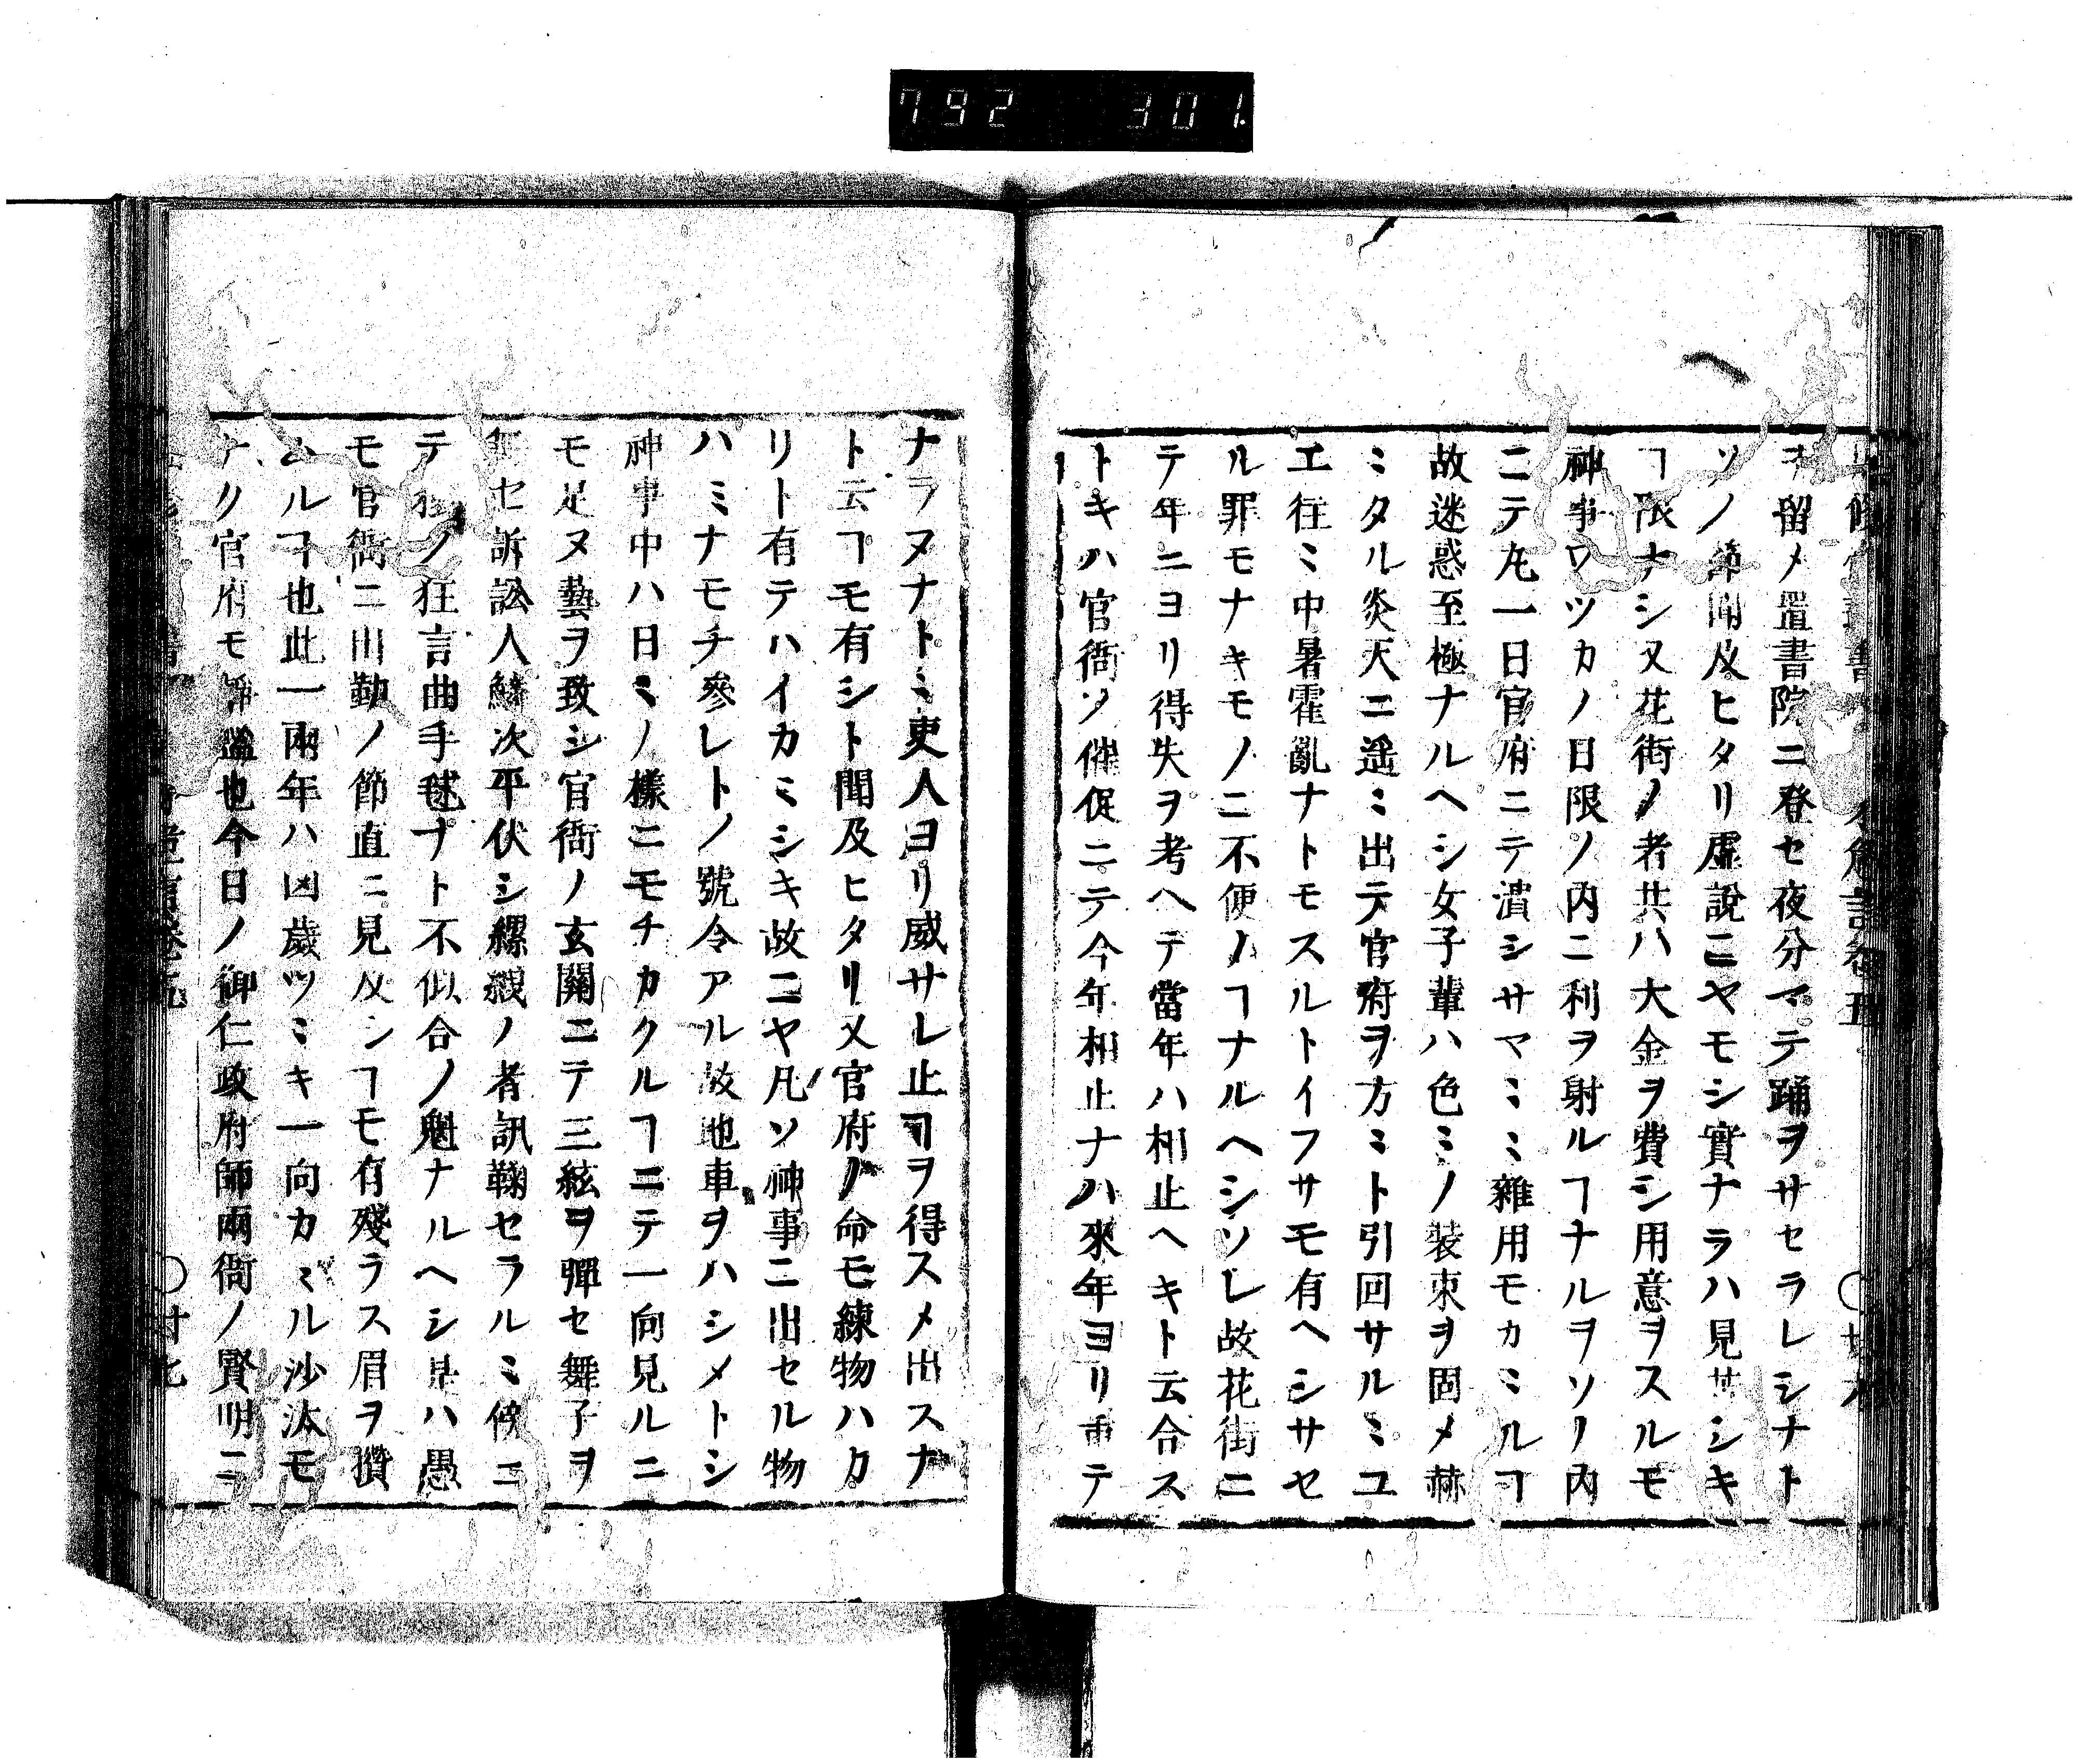 792 301
ヲ留メ置書院ニ登セ夜分マテ踊ヲサセラレシナト
ソノ節聞及ヒタリ虚說ニヤモシ實ナラハ見苦シキ
ヿ限ナシ又花街ノ者共ハ大金ヲ費シ用意ヲスルモ
神事ワツカノ日限ノ内ニ利ヲ射ルヿナルヲソノ内
ニテ丸一日官府ニテ潰シサマ〻〻雜用モカ〻ルヿ
故迷惑至極ナルヘシ女子輩ハ色〻ノ裝束ヲ固メ赫
〻タル炎天ニ遥〻出テ官府ヲ方〻ト引回サル〻ユ
エ往〻中暑霍亂ナトモスルトイフサモ有ヘシサセ
ル罪モナキモノニ不便ノヿナルヘシソレ故花街ニ
テ年ニヨリ得失ヲ考ヘテ當年ハ相止ヘキト云合ス
トキハ官衙ソ催促ニテ今年相止ナハ來年ヨリ重テ
ナラヌナト〻吏人ヨリ威サレ止ヿヲ得スメ出スナ
ト云ヿモ有シト聞及ヒタリ又官府ノ命モ練物ハカ
リト有テハイカ〻シキ故ニヤ凡ソ神事ニ出セル物
ハミナモチ參レトノ號令アル故地車ヲハシメトシ
神事中ハ日〻ノ樣ニモチカクルヿニテ一向見ルニ
モ足ヌ藝ヲ致シ官衙ノ玄關ニテ三絃ヲ彈セ舞子ヲ
舞セ訴訟人鱗次平伏シ縲絏ノ者訊鞠セラル〻傍ニ
テ種〻ノ狂言曲手毬ナト不似合ノ魁ナルヘシ是ハ愚
モ官衙ニ出勤ノ節直ニ見及シヿモ有殘ラス眉ヲ攢
ムルヿ也此一兩年ハ凶歲ツ〻キ一向カ〻ル沙汰モ
ナク官府モ靜謐也今日ノ御仁政府師兩衙ノ賢明ニ